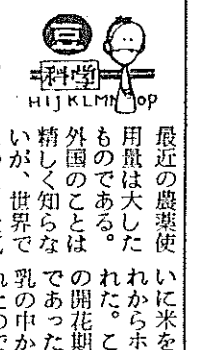 科学
HIJKLMN OP
最近の農薬使
用量は大した
ものである。
外国のことは
精しく知らな
いが、世界で
いに米を
れからホ
れた。こ
の開花期
であった
乳の中か